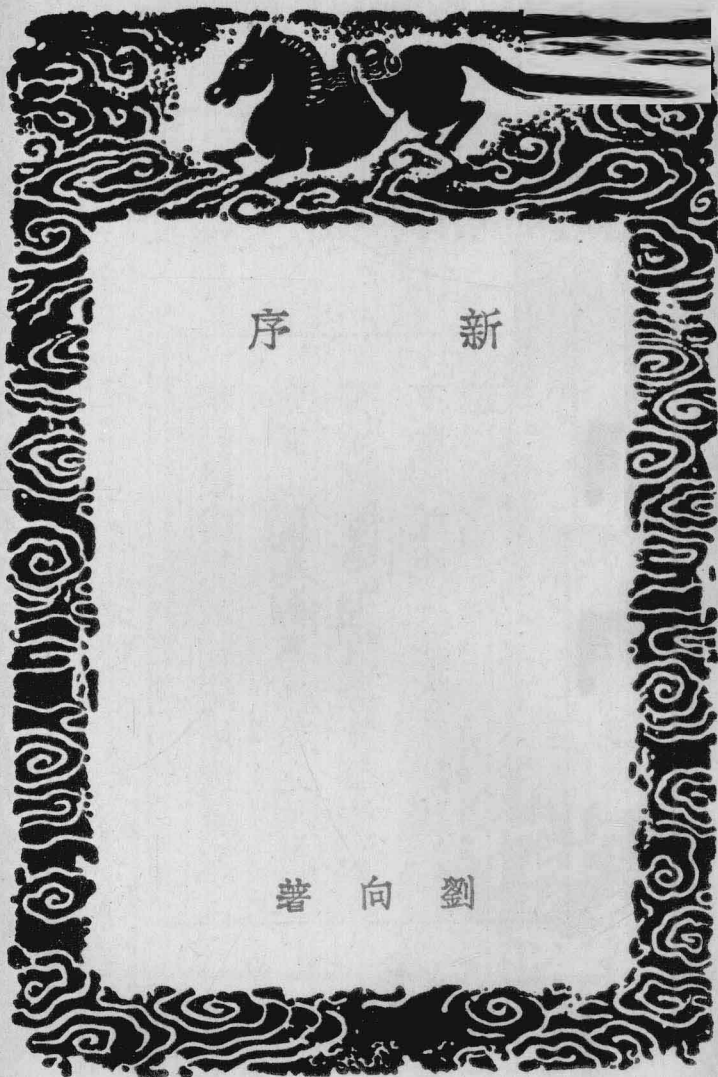 新序
劉向著